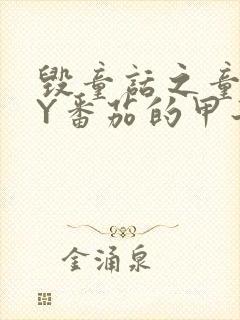 毁童话之童
Y番茄的甲
金涌泉